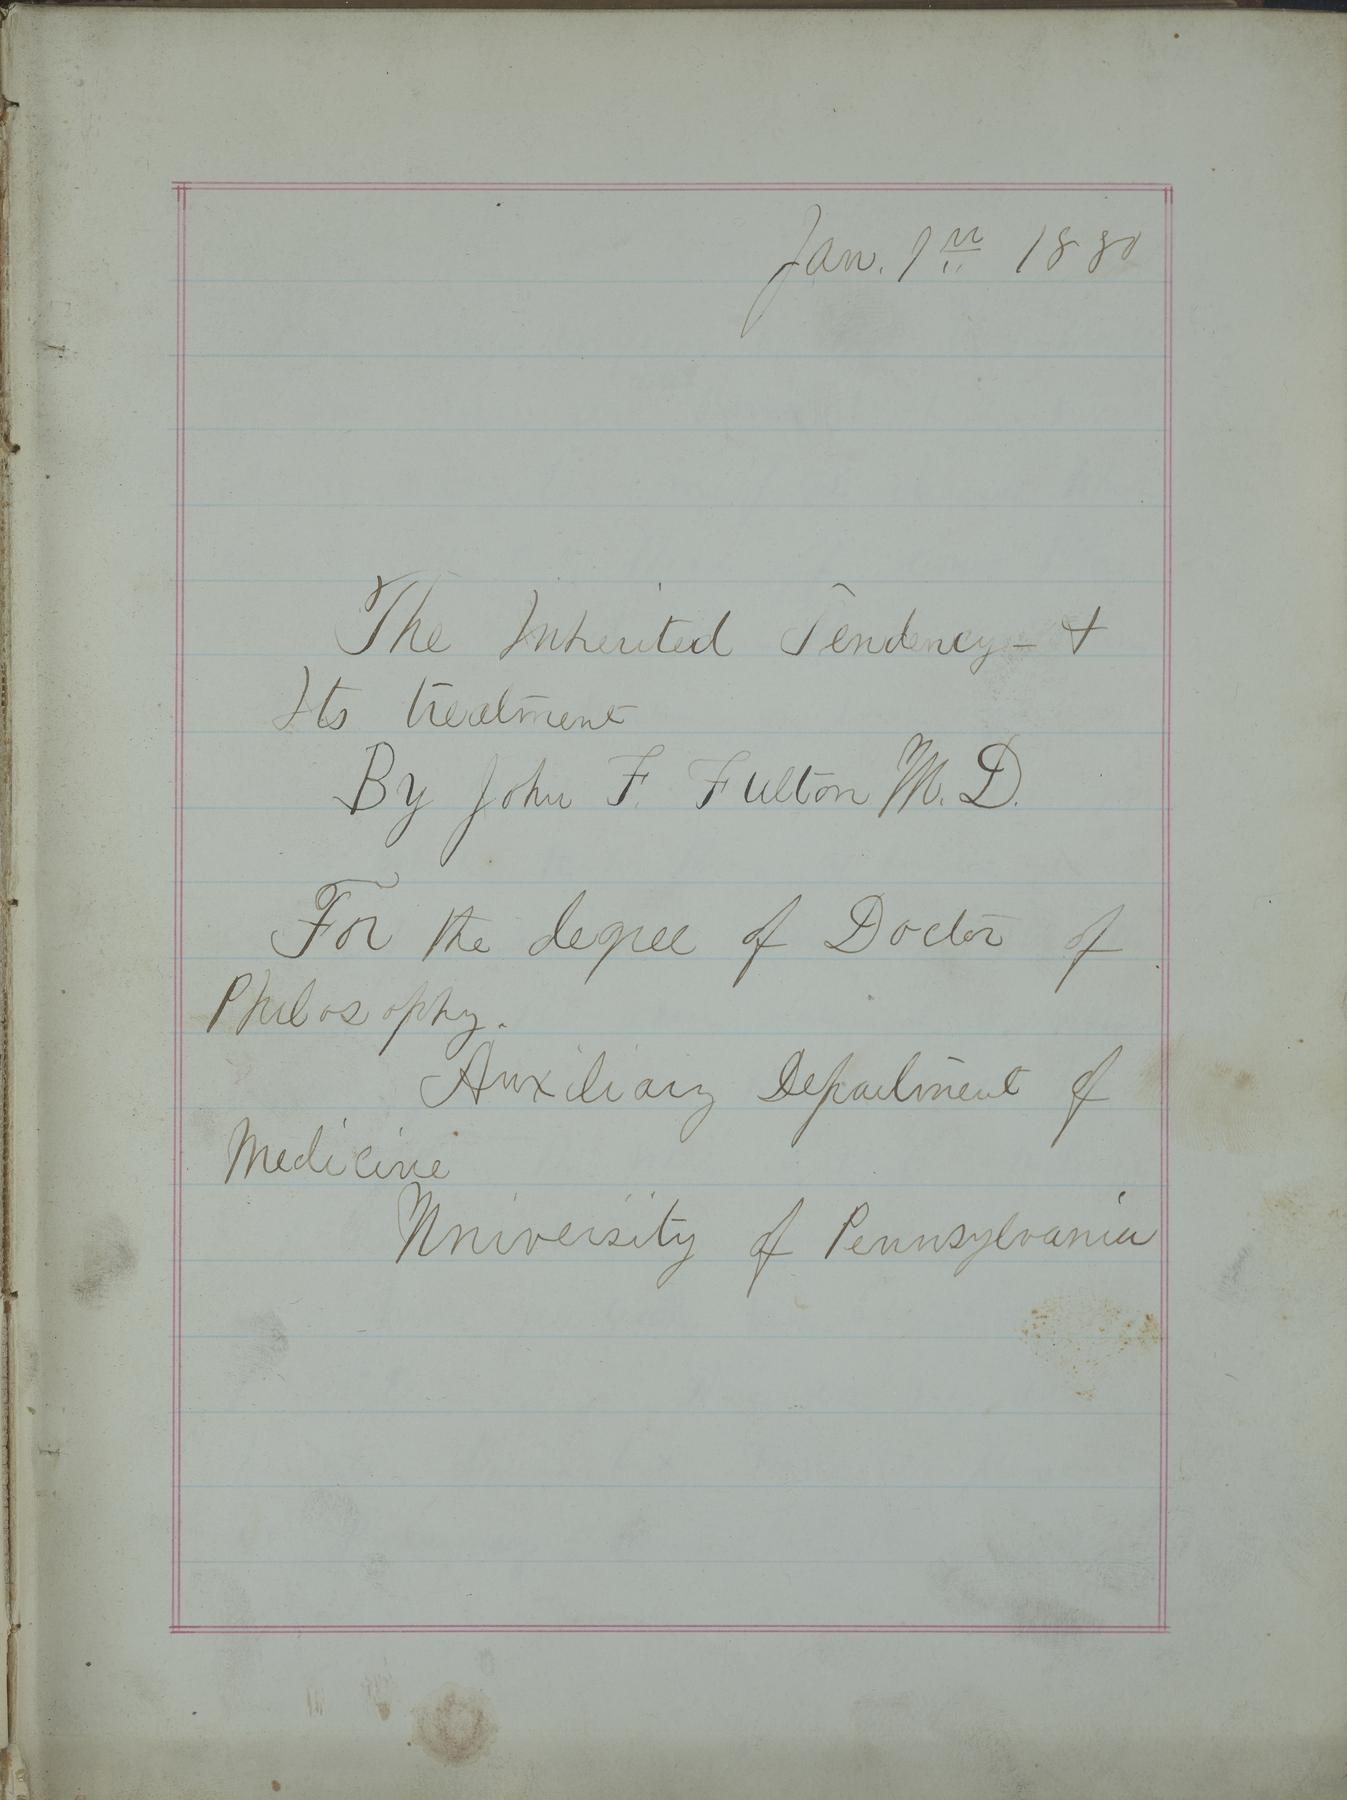 Jan. 1st 1880
The Inherited Tendency - &
Its treatment
By John F. Fulton M.D.
For the degree of Doctor of
Philosophy.
Auxiliary Department of
Medicine
University of Pennsylvania